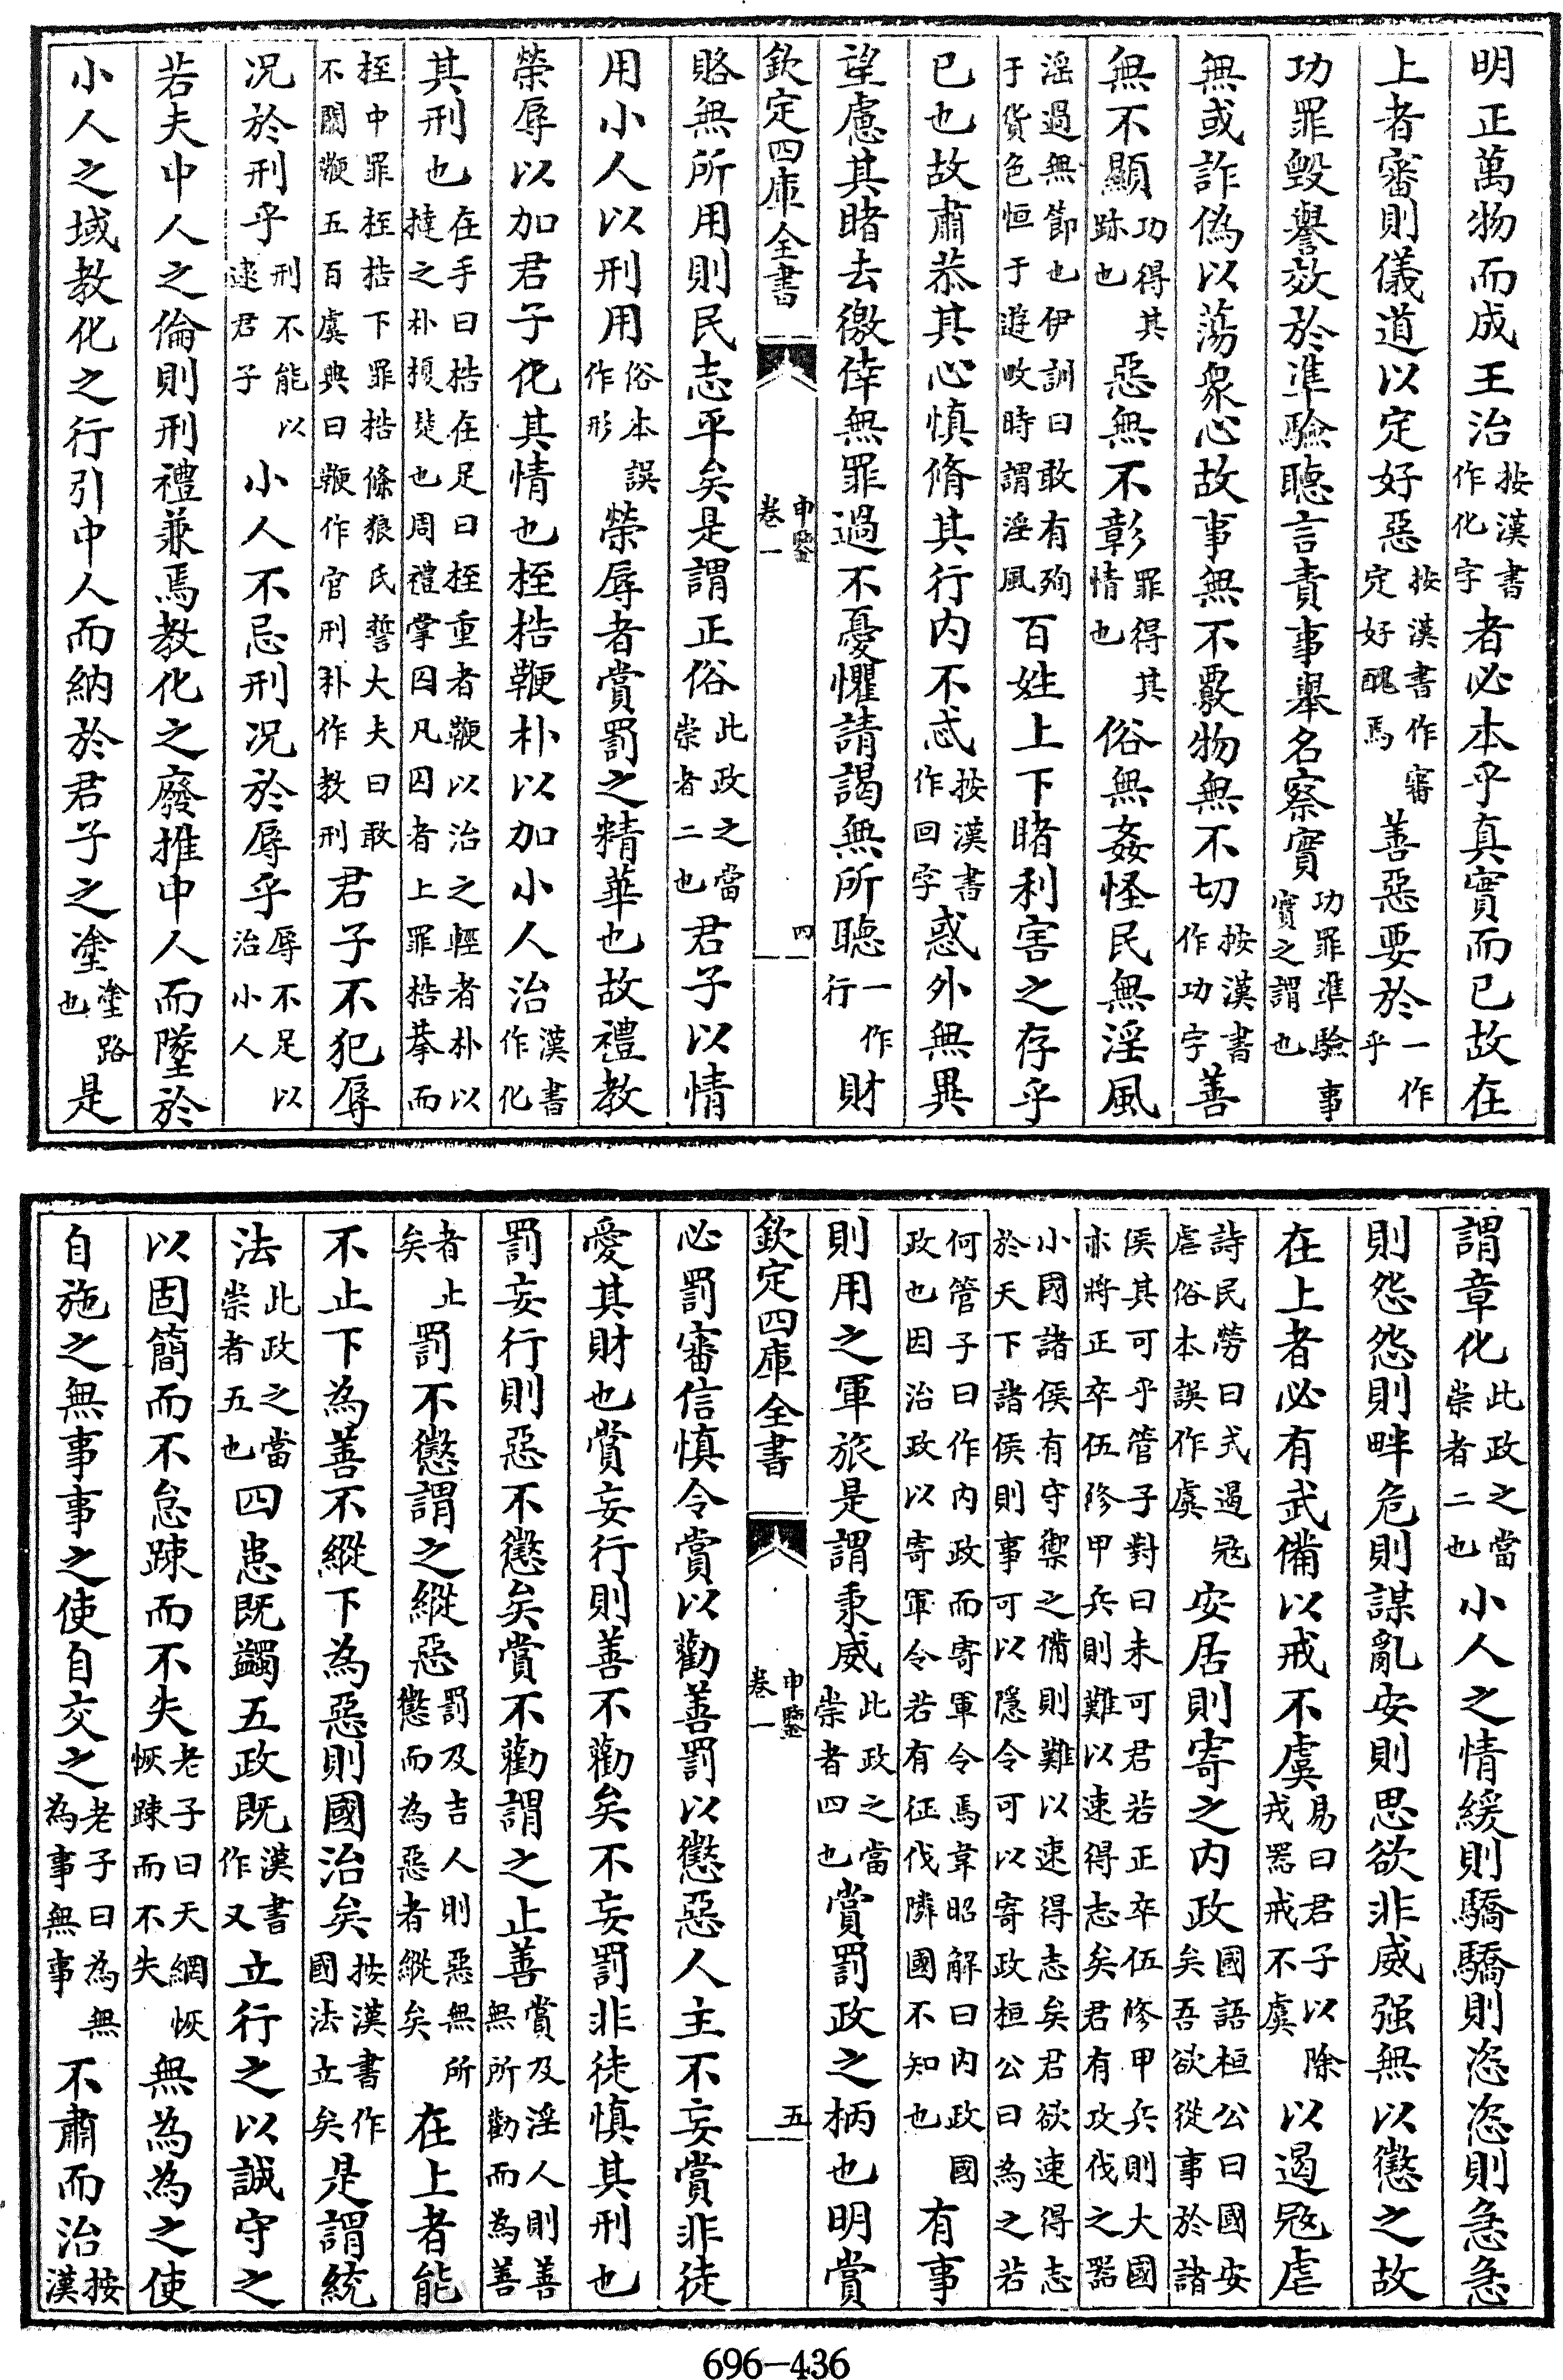 明正萬物而成王治按漢書作化字者必本乎真實而已故在
上者審則儀道以定好惡按漢書作審定好醜焉善惡要於一作乎
功罪毀譽效於凖驗聽言責事舉名察實功罪凖驗事實之謂也
無或詐偽以蕩衆心故事無不覈物無不切按漢書作功字善
無不顯功得其跡也惡無不彰罪得其情也俗無姦怪民無淫風
淫過無節也伊訓曰敢有殉于貨色恒于遊畋時謂淫風百姓上下睹利害之存乎
已也故肅恭其心慎脩其行内不忒按漢書作回字惑外無異
望慮其睹去徼倖無罪過不憂懼請謁無所聽一作行財
欽定四庫全書 申鑒 卷一 四
賂無所用則民志平矣是謂正俗此政之當崇者二也君子以情
用小人以刑用俗本誤作形榮辱者賞罰之精華也故禮教
榮辱以加君子化其情也桎梏鞭朴以加小人治漢書作化
其刑也在手曰梏在足曰桎重者鞭以治之輕者朴以撻之朴槚楚也周禮掌囚凡囚者上罪梏拲而
桎中罪桎梏下罪梏條狼氏誓大夫曰敢不關鞭五百虞典曰鞭作官刑朴作教刑君子不犯辱
况於刑乎刑不能以逮君子小人不忌刑况於辱乎辱不足以治小人
若夫中人之倫則刑禮兼焉教化之廢推中人而墜於
小人之域教化之行引中人而納於君子之塗塗路也是
謂章化此政之當崇者二也小人之情緩則驕驕則恣恣則急急
則怨怨則畔危則謀亂安則思欲非威强無以懲之故
在上者必有武備以戒不虞易曰君子以除戎器戒不虞以遏寇虐
詩民勞曰式遏寇虐俗本誤作虞安居則寄之内政國語桓公曰國安矣吾欲從事於諸
侯其可乎管子對曰未可君若正卒伍修甲兵則大國亦將正卒伍修甲兵則難以速得志矣君有攻伐之器
小國諸侯有守禦之備則難以速得志矣君欲速得志於天下諸侯則事可以隱令可以寄政桓公曰為之若
何管子曰作内政而寄軍令焉韋昭解曰内政國政也因治政以寄軍令若有征伐隣國不知也有事
則用之軍旅是謂秉威此政之當崇者四也賞罰政之柄也明賞
欽定四庫全書 申鑒 卷一 五
必罰審信慎令賞以勸善罰以懲惡人主不妄賞非徒
愛其財也賞妄行則善不勸矣不妄罰非徒慎其刑也
罰妄行則惡不懲矣賞不勸謂之止善賞及淫人則善無所勸而為善
者止矣罰不懲謂之縱惡罰及吉人則惡無所懲而為惡者縱矣在上者能
不止下為善不縱下為惡則國治矣按漢書作國法立矣是謂統
法此政之當崇者五也四患既蠲五政既漢書作又立行之以誠守之
以固簡而不怠踈而不失老子曰天網恢恢踈而不失無為為之使
自施之無事事之使自交之老子曰為無為事無事不肅而治按漢
696-436